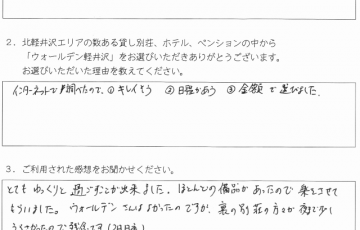 2. 北軽井沢エリアの数ある貸し別荘、ホテル、ペンションの中から
「ウォールデン軽井沢」をお選びいただきありがとうございます。
お選びいただいた理由を教えてください。
インターネットで調べたので、①キレイそう ②日程があう ③金額 で選びました.
3. ご利用された感想をお聞かせください。
とても ゆっくりと過ごすことが出来ました。ほとんどの備品があったので 楽をさせて
もらいました。ウォールデン さんはよかったのですが、裏の別荘の方々が 夜で少し
うるさかったので残念です(2日目)